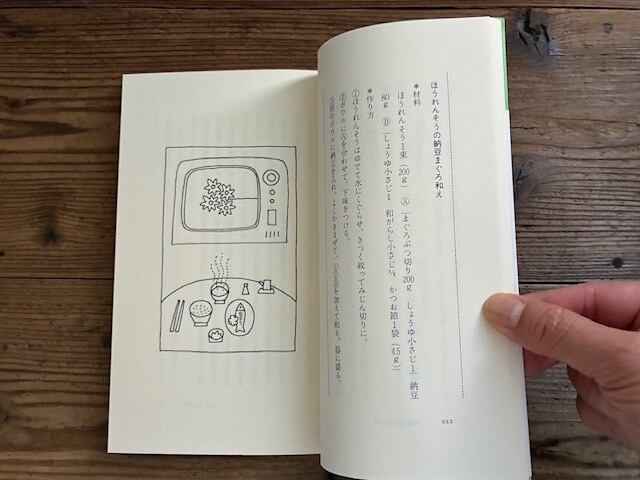 ほうれんそうの納豆まぐろ和え
*材料
ほうれんそう1束(200g) Ⓐ[まぐろぶつ切り200g しょうゆ小さじ1] 納豆
80g Ⓑ[しょうゆ小さじ1 和がらし小さじ½ かつお節1袋(4.5g)]
*作り方
①ほうれんそうはゆでて水にくぐらせ、きつく絞ってみじん切りに。
②ボウルにⒶを合わせて、下味をつける。
③別のボウルに納豆を入れ、よくかきまぜて、①②Ⓑを加えて和え、器に盛る。
022